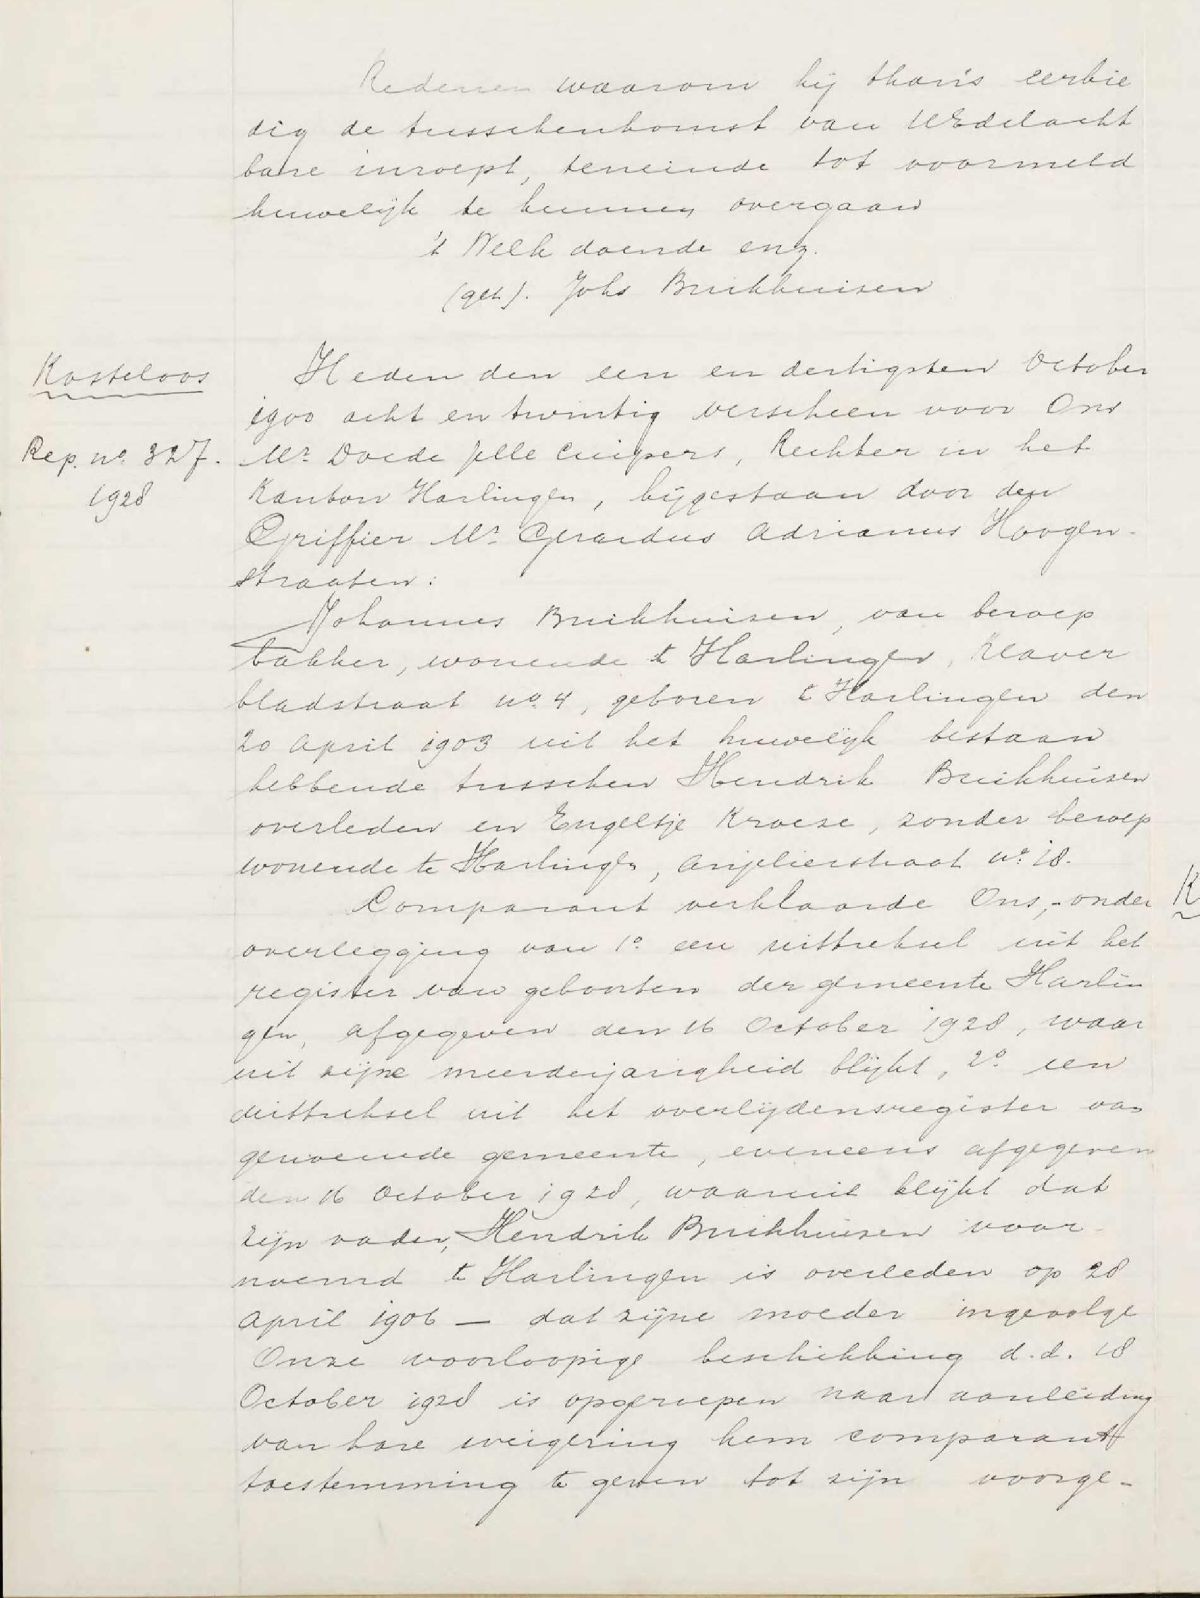 Redenen waarom hij thans eerbie
dig de tusschenkomst van UEdelacht
bare inroept, teneinde tot voormeld
huwelijk te kunnen overgaan
't Welk doende enz.
(get). Johs Buikhuisen
Kosteloos
Rep. no. 327.
1928
Heden den een en dertigsten October
1900 acht en twintig verscheen voor Ons
Mr. Doede Jelle Cuipers, Rechter in het
Kanton Harlingen, bijgestaan door den
Griffier Mr. Gerardus Adrianus Hoogen-
straaten:
Johannes Buikhuisen, van beroep
bakker, wonende te Harlingen, Klaver
bladstraat no. 4, geboren te Harlingen den
20 April 1903 uit het huwelijk bestaan
hebbende tusschen Hendrik Buikhuisen
overleden en Engeltje Kroese, zonder beroep
wonende te Harlingen, Anjelierstraat no. 18.
Comparant verklaarde Ons,- onder
overlegging van 1o. een uittreksel uit het
register van geboorten der gemeente Harlin
gen, afgegeven den 16 October 1928, waar
uit zijne meerderjarigheid blijkt, 2o. een
uittreksel uit het overlijdensregister van
genoemde gemeente, eveneens afgegeven
den 16 October 1928, waaruit blijkt dat
zijn vader, Hendrik Buikhuisen voor-
noemd te Harlingen is overleden op 28
April 1906 — dat zijne moeder ingevolge
Onze voorloopige beschikking d.d. 18
October 1928 is opgeroepen naar aanleiding
van hare weigering hem comparant
toestemming te geven tot zijn voorge-
K